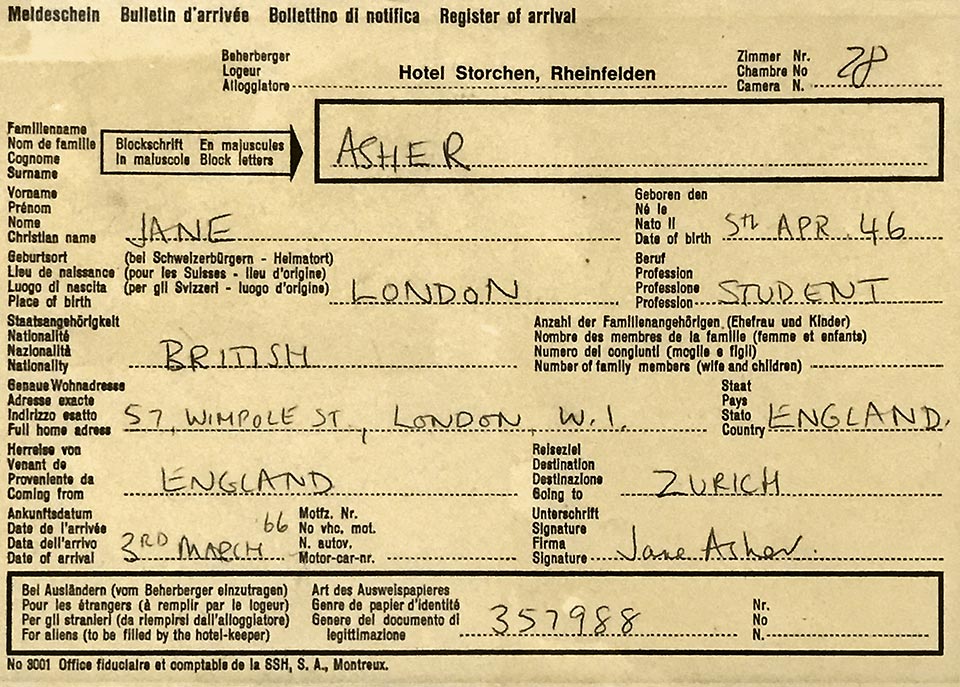 Meldeschein Bulletin d'arrivée Bollettino di notifica Register of arrival
Beherberger
Logeur
Alloggiatore
Hotel Storchen, Rheinfelden
Zimmer Nr.
Chambre No
Camera N.
28
Familienname
Nom de famille
Cognome
Surname
Blockschrift En majuscules
In maluscole Block letters
ASHER
Vorname
Prénom
Nome
Christian name
JANE
Geboren den
Né le
Nato il
Date of birth
5th APR. 46
Geburtsort (bei Schweizerbürgern - Heimatort)
Lieu de naissance (pour les Suisses - lieu d'origine)
Luogo di nascita (per gli Svizzeri - luogo d'origine)
Place of birth
LONDON
Beruf
Profession
Professione
Profession
STUDENT
Staatsangehörigkeit
Nationalité
Nazionalità
Nationality
BRITISH
Anzahl der Familienangehörigen (Ehefrau und Kinder)
Nombre des membres de la famille (femme et enfants)
Numero dei congiunti (moglie e figli)
Number of family members (wife and children)
Genaue Wohnadresse
Adresse exacte
Indirizzo esatto
Full home adress
57, WIMPOLE ST., LONDON, W.1.
Staat
Pays
Stato
Country
ENGLAND.
Herreise von
Venant de
Proveniente da
Coming from
ENGLAND
Reiseziel
Destination
Destinazione
Going to
ZURICH
Ankunftsdatum
Date de l'arrivée
Data dell'arrivo
Date of arrival
3RD MARCH 66
Motfz. Nr.
No vhc. mot.
N. autov.
Motor-car-nr.
Unterschrift
Signature
Firma
Signature
Jane Asher.
Bei Ausländern (vom Beherberger einzutragen)
Pour les étrangers (à remplir par le logeur)
Per gli stranieri (da riempirsi dall'alloggiatore)
For aliens (to be filled by the hotel-keeper)
Art des Ausweispapieres
Genre de papier d'identité
Genere del documento di
legittimazione
357988
Nr.
No
N.
No 3001 Office fiduciaire et comptable de la SSH, S. A., Montreux.